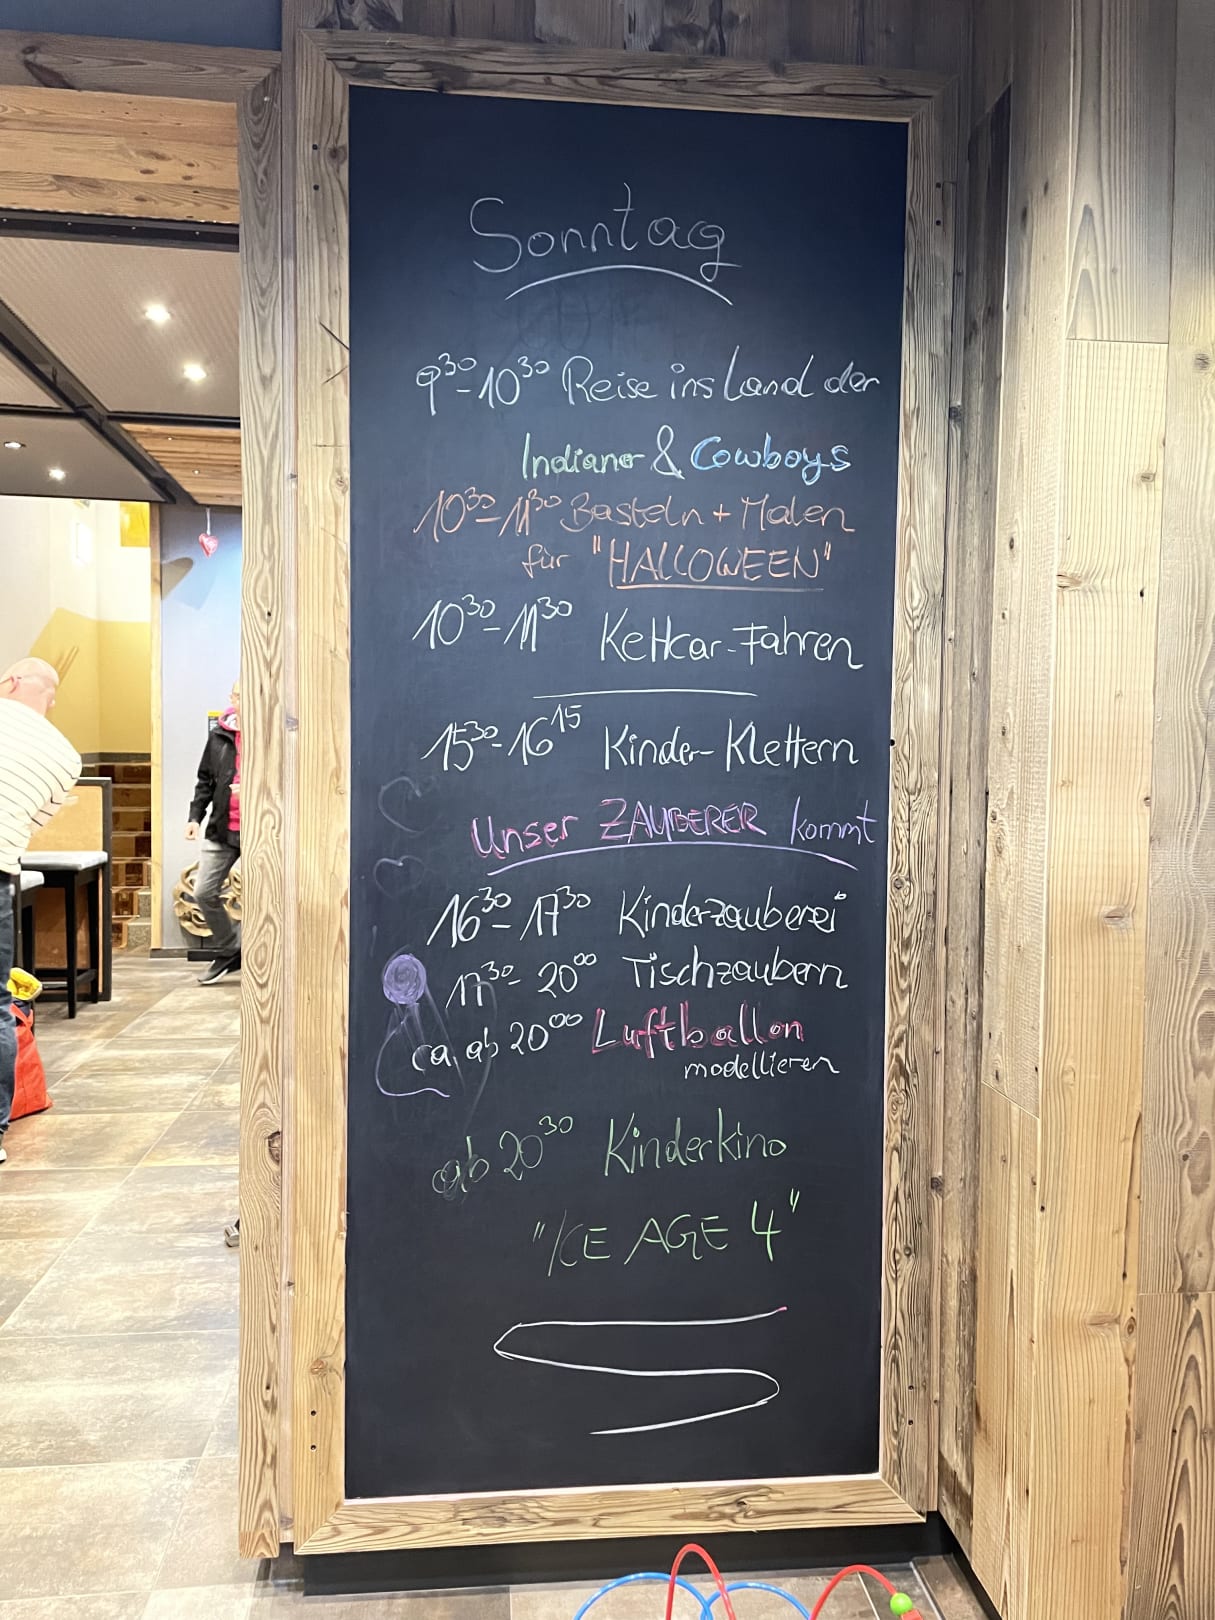 Sonntag
9³⁰-10³⁰ Reise ins Land der
Indianer & Cowboys
10³⁰-11³⁰ Basteln + Malen
für "HALLOWEEN"
10³⁰-11³⁰ Kettcar-Fahren
15³⁰-16¹⁵ Kinder-Klettern
Unser ZAUBERER kommt
16³⁰-17³⁰ Kinderzauberei
17³⁰-20⁰⁰ Tischzaubern
ca. ab 20⁰⁰ Luftballon
modellieren
ab 20³⁰ Kinderkino
"ICE AGE 4"